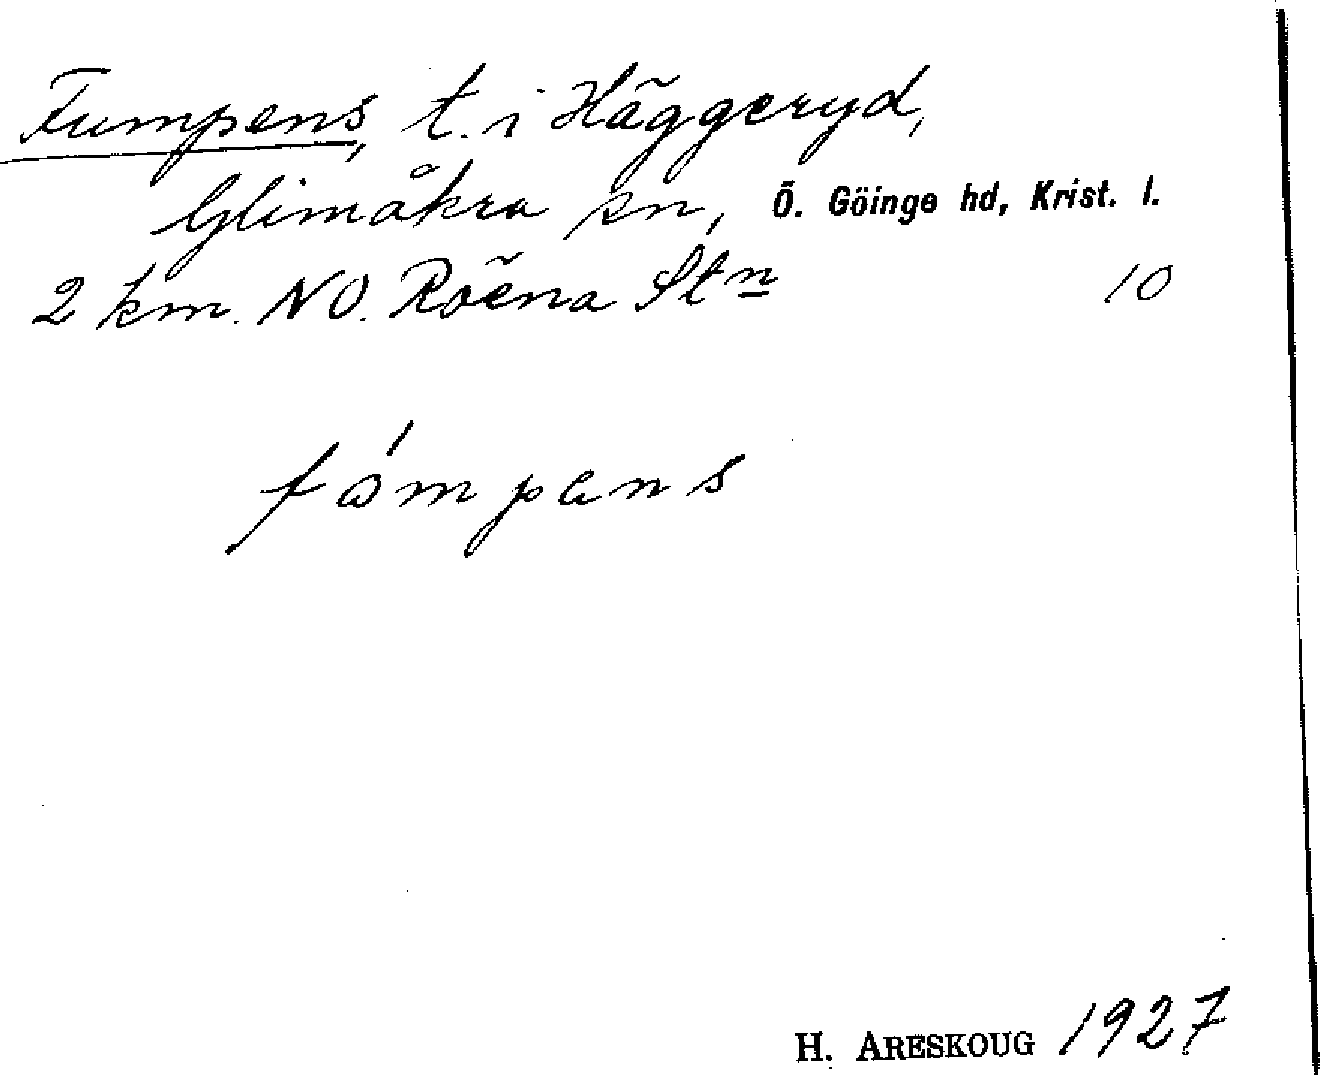 Fumpens, t. i Häggeryd,
Glimåkra sn, Ö. Göinge hd, Krist. l.
2 km. NO. Röena Stn 10
fómpens
H. ARESKOUG 1927